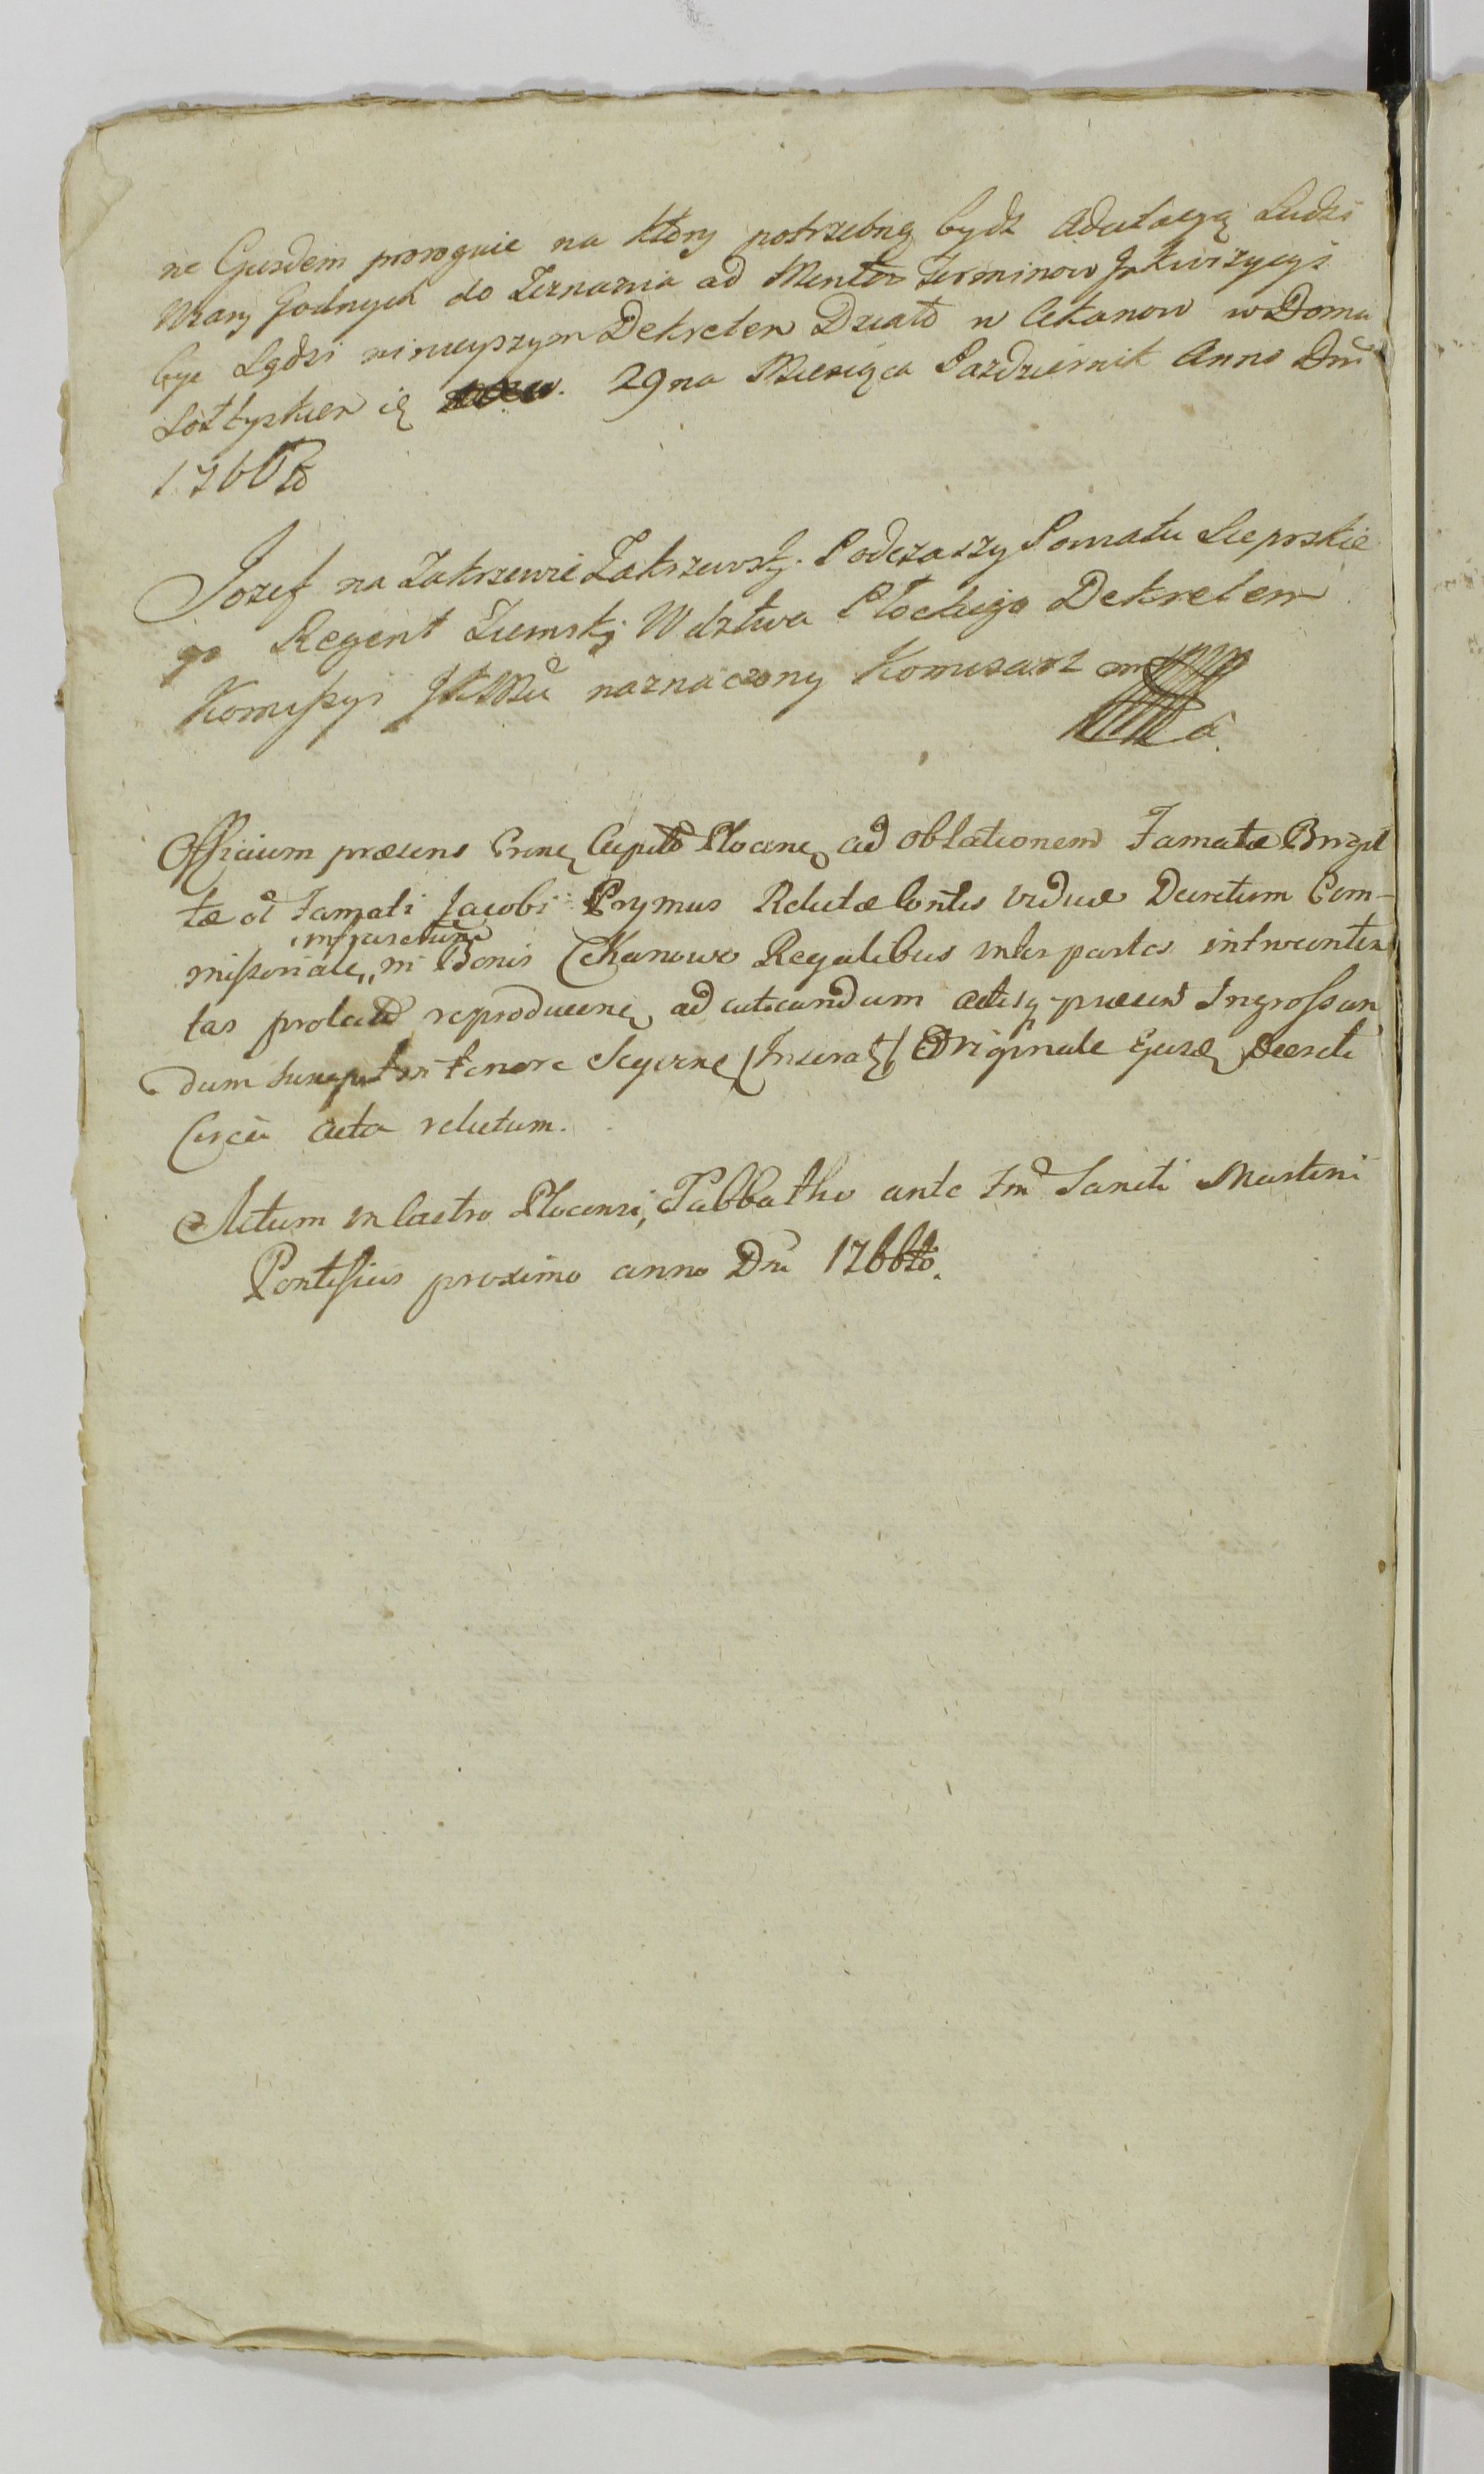 ne Gusdem proroguie na Ktory potrzebną bydz Aductacyą Ludzi
Wiary Godnych do Zeznania ad Mentem Terminow Jnkwizycyi
bye Sądzi ninieyszym Dekretem Działo w Cekanow w Domu
Sołtyskiem ię 29na Miesiąca Pazdziernik Anno Dni
1766to
Jozef na Zakrzewie Zakrzewsky Podczaszy Powiatu Sieprskie
go Regent Ziemsky Wdztwa Płockiego Dekretem
Komissyi JKMci naznaczony Komisarz mp
Officium præsens Crense Capitle Plocense ad oblationem Famatæ Brigit
tæ ol Famati Jacobi Prymus Relictæ Contis viduæ Decretum Com-
infrascriptum
missoriale in Bonis Cekanowo Regalibus inter partes introconten
tas prolatum reproducens ad acticandum actisq præsen Ingrossan
dum suscepit in tenore Sequens Originale Ejusd Decreti
Circa acta relictum.
Actum in Castro Plocensi, Sabbatho ante Fm Sancti Martini
Pontificis proximo anno Dni 1766to.